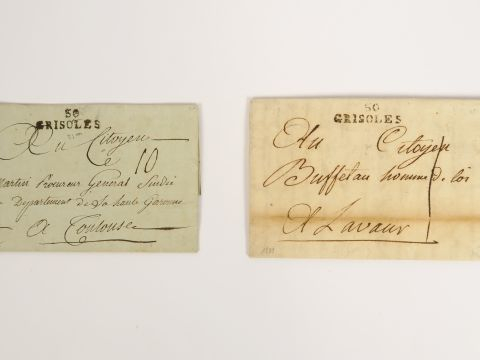 50
GRISOLES
Au Citoyen
10
Martin Procureur General Sindic
Departement de La haute Garonne
A Toulouse
50
GRISOLES
Au Citoyen
Buffelan homme de loi
A Lavaur